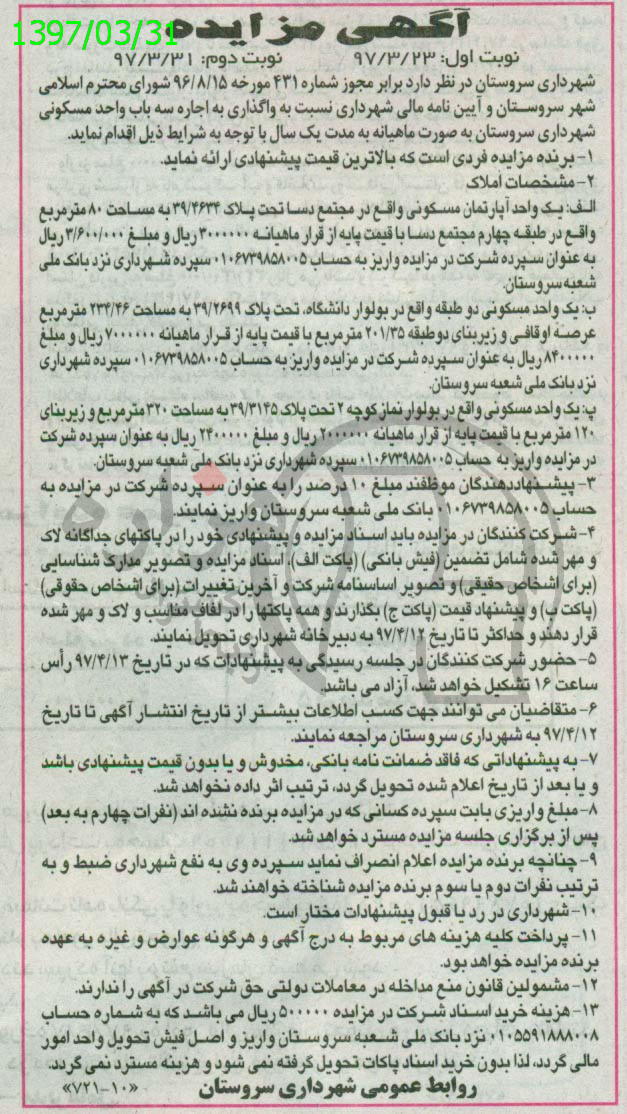 آگهی مزایده
1397/03/31
نوبت اول: ۹۷/۳/۲۳ نوبت دوم: ۹۷/۳/۳۱
شهرداری سروستان در نظر دارد برابر مجوز شماره ۴۳۱ مورخه ۹۶/۸/۱۵ شورای محترم اسلامی
شهر سروستان و آیین نامه مالی شهرداری نسبت به واگذاری به اجاره سه باب واحد مسکونی
شهرداری سروستان به صورت ماهیانه به مدت یک سال با توجه به شرایط ذیل اقدام نماید.
۱- برنده مزایده فردی است که بالاترین قیمت پیشنهادی ارائه نماید.
۲- مشخصات املاک
الف: یک واحد آپارتمان مسکونی واقع در مجتمع دسا تحت پلاک ۳۹/۴۶۳۴ به مساحت ۸۰ مترمربع
واقع در طبقه چهارم مجتمع دسا با قیمت پایه از قرار ماهیانه ۳۰۰۰۰۰۰ ریال و مبلغ ۳/۶۰۰/۰۰۰ ریال
به عنوان سپرده شرکت در مزایده واریز به حساب ۰۱۰۶۷۳۹۸۵۸۰۰۵ سپرده شهرداری نزد بانک ملی
شعبه سروستان.
ب: یک واحد مسکونی دو طبقه واقع در بولوار دانشگاه، تحت پلاک ۳۹/۲۶۹۹ به مساحت ۲۳۴/۴۶ مترمربع
عرصه اوقافی و زیربنای دوطبقه ۲۰۱/۳۵ مترمربع با قیمت پایه از قرار ماهیانه ۷۰۰۰۰۰۰ ریال و مبلغ
۸۴۰۰۰۰۰ ریال به عنوان سپرده شرکت در مزایده واریز به حساب ۰۱۰۶۷۳۹۸۵۸۰۰۵ سپرده شهرداری
نزد بانک ملی شعبه سروستان.
پ: یک واحد مسکونی واقع در بولوار نماز کوچه ۲ تحت پلاک ۳۹/۳۱۴۵ به مساحت ۳۲۰ مترمربع و زیربنای
۱۲۰ مترمربع با قیمت پایه از قرار ماهیانه ۲۰۰۰۰۰۰ ریال و مبلغ ۲۴۰۰۰۰۰ ریال به عنوان سپرده شرکت
در مزایده واریز به حساب ۰۱۰۶۷۳۹۸۵۸۰۰۵ سپرده شهرداری نزد بانک ملی شعبه سروستان.
۳- پیشنهاددهندگان موظفند مبلغ ۱۰ درصد را به عنوان سپرده شرکت در مزایده به
حساب ۰۱۰۶۷۳۹۸۵۸۰۰۵ بانک ملی شعبه سروستان واریز نمایند.
۴- شرکت کنندگان در مزایده باید اسناد مزایده و پیشنهادی خود را در پاکتهای جداگانه لاک
و مهر شده شامل تضمین (فیش بانکی) (پاکت الف)، اسناد مزایده و تصویر مدارک شناسایی
(برای اشخاص حقیقی) و تصویر اساسنامه شرکت و آخرین تغییرات (برای اشخاص حقوقی)
(پاکت ب) و پیشنهاد قیمت (پاکت ج) بگذارند و همه پاکتها را در لفاف مناسب و لاک و مهر شده
قرار دهند و حداکثر تا تاریخ ۹۷/۴/۱۲ به دبیرخانه شهرداری تحویل نمایند.
۵- حضور شرکت کنندگان در جلسه رسیدگی به پیشنهادات که در تاریخ ۹۷/۴/۱۳ رأس
ساعت ۱۶ تشکیل خواهد شد، آزاد می باشد.
۶- متقاضیان می توانند جهت کسب اطلاعات بیشتر از تاریخ انتشار آگهی تا تاریخ
۹۷/۴/۱۲ به شهرداری سروستان مراجعه نمایند.
۷- به پیشنهاداتی که فاقد ضمانت نامه بانکی، مخدوش و یا بدون قیمت پیشنهادی باشد
و یا بعد از تاریخ اعلام شده تحویل گردد، ترتیب اثر داده نخواهد شد.
۸- مبلغ واریزی بابت سپرده کسانی که در مزایده برنده نشده اند (نفرات چهارم به بعد)
پس از برگزاری جلسه مزایده مسترد خواهد شد.
۹- چنانچه برنده مزایده اعلام انصراف نماید سپرده وی به نفع شهرداری ضبط و به
ترتیب نفرات دوم یا سوم برنده مزایده شناخته خواهند شد.
۱۰- شهرداری در رد یا قبول پیشنهادات مختار است.
۱۱- پرداخت کلیه هزینه های مربوط به درج آگهی و هرگونه عوارض و غیره به عهده
برنده مزایده خواهد بود.
۱۲- مشمولین قانون منع مداخله در معاملات دولتی حق شرکت در آگهی را ندارند.
۱۳- هزینه خرید اسناد شرکت در مزایده ۵۰۰۰۰۰ ریال می باشد که به شماره حساب
۰۱۰۵۵۹۱۸۸۸۰۰۸ نزد بانک ملی شعبه سروستان واریز و اصل فیش تحویل واحد امور
مالی گردد، لذا بدون خرید اسناد پاکات تحویل گرفته نمی شود و هزینه مسترد نمی گردد.
روابط عمومی شهرداری سروستان «۷۲۱-۱۰»